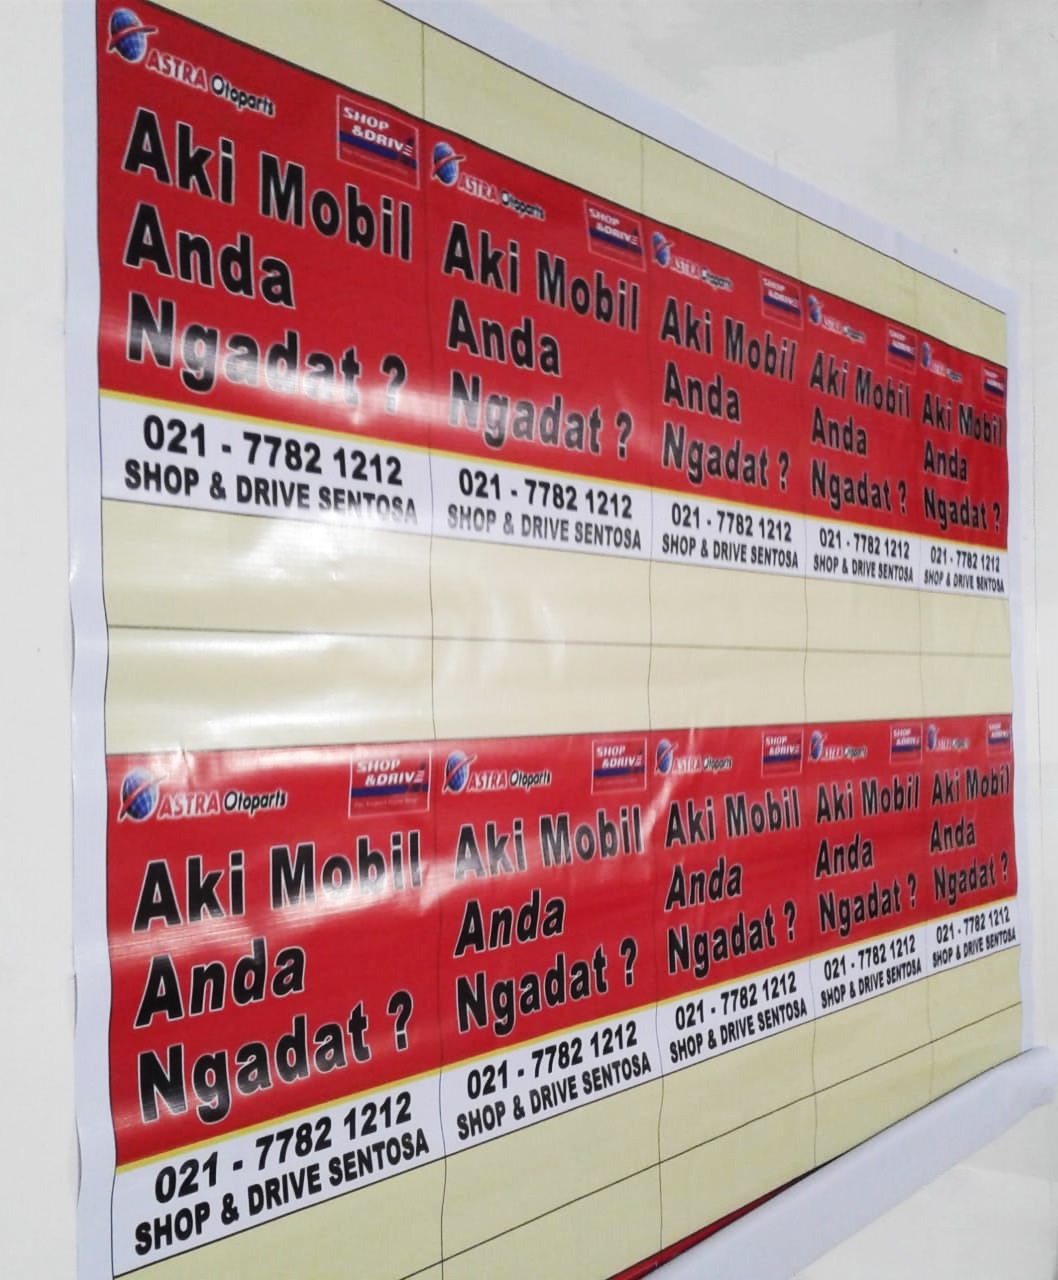 ASTRA Otoparts
SHOP
&DRIVE
Aki Mobil
Anda
Ngadat ?
021 - 7782 1212
SHOP & DRIVE SENTOSA
ASTRA Otoparts
SHOP
&DRIVE
Aki Mobil
Anda
Ngadat ?
021 - 7782 1212
SHOP & DRIVE SENTOSA
ASTRA Otoparts
SHOP
&DRIVE
Aki Mobil
Anda
Ngadat ?
021 - 7782 1212
SHOP & DRIVE SENTOSA
ASTRA Otoparts
SHOP
&DRIVE
Aki Mobil
Anda
Ngadat ?
021 - 7782 1212
SHOP & DRIVE SENTOSA
ASTRA Otoparts
SHOP
&DRIVE
Aki Mobil
Anda
Ngadat ?
021 - 7782 1212
SHOP & DRIVE SENTOSA
ASTRA Otoparts
SHOP
&DRIVE
Aki Mobil
Anda
Ngadat ?
021 - 7782 1212
SHOP & DRIVE SENTOSA
ASTRA Otoparts
SHOP
&DRIVE
Aki Mobil
Anda
Ngadat ?
021 - 7782 1212
SHOP & DRIVE SENTOSA
ASTRA Otoparts
SHOP
&DRIVE
Aki Mobil
Anda
Ngadat ?
021 - 7782 1212
SHOP & DRIVE SENTOSA
ASTRA Otoparts
SHOP
&DRIVE
Aki Mobil
Anda
Ngadat ?
021 - 7782 1212
SHOP & DRIVE SENTOSA
ASTRA Otoparts
SHOP
&DRIVE
Aki Mobil
Anda
Ngadat ?
021 - 7782 1212
SHOP & DRIVE SENTOSA